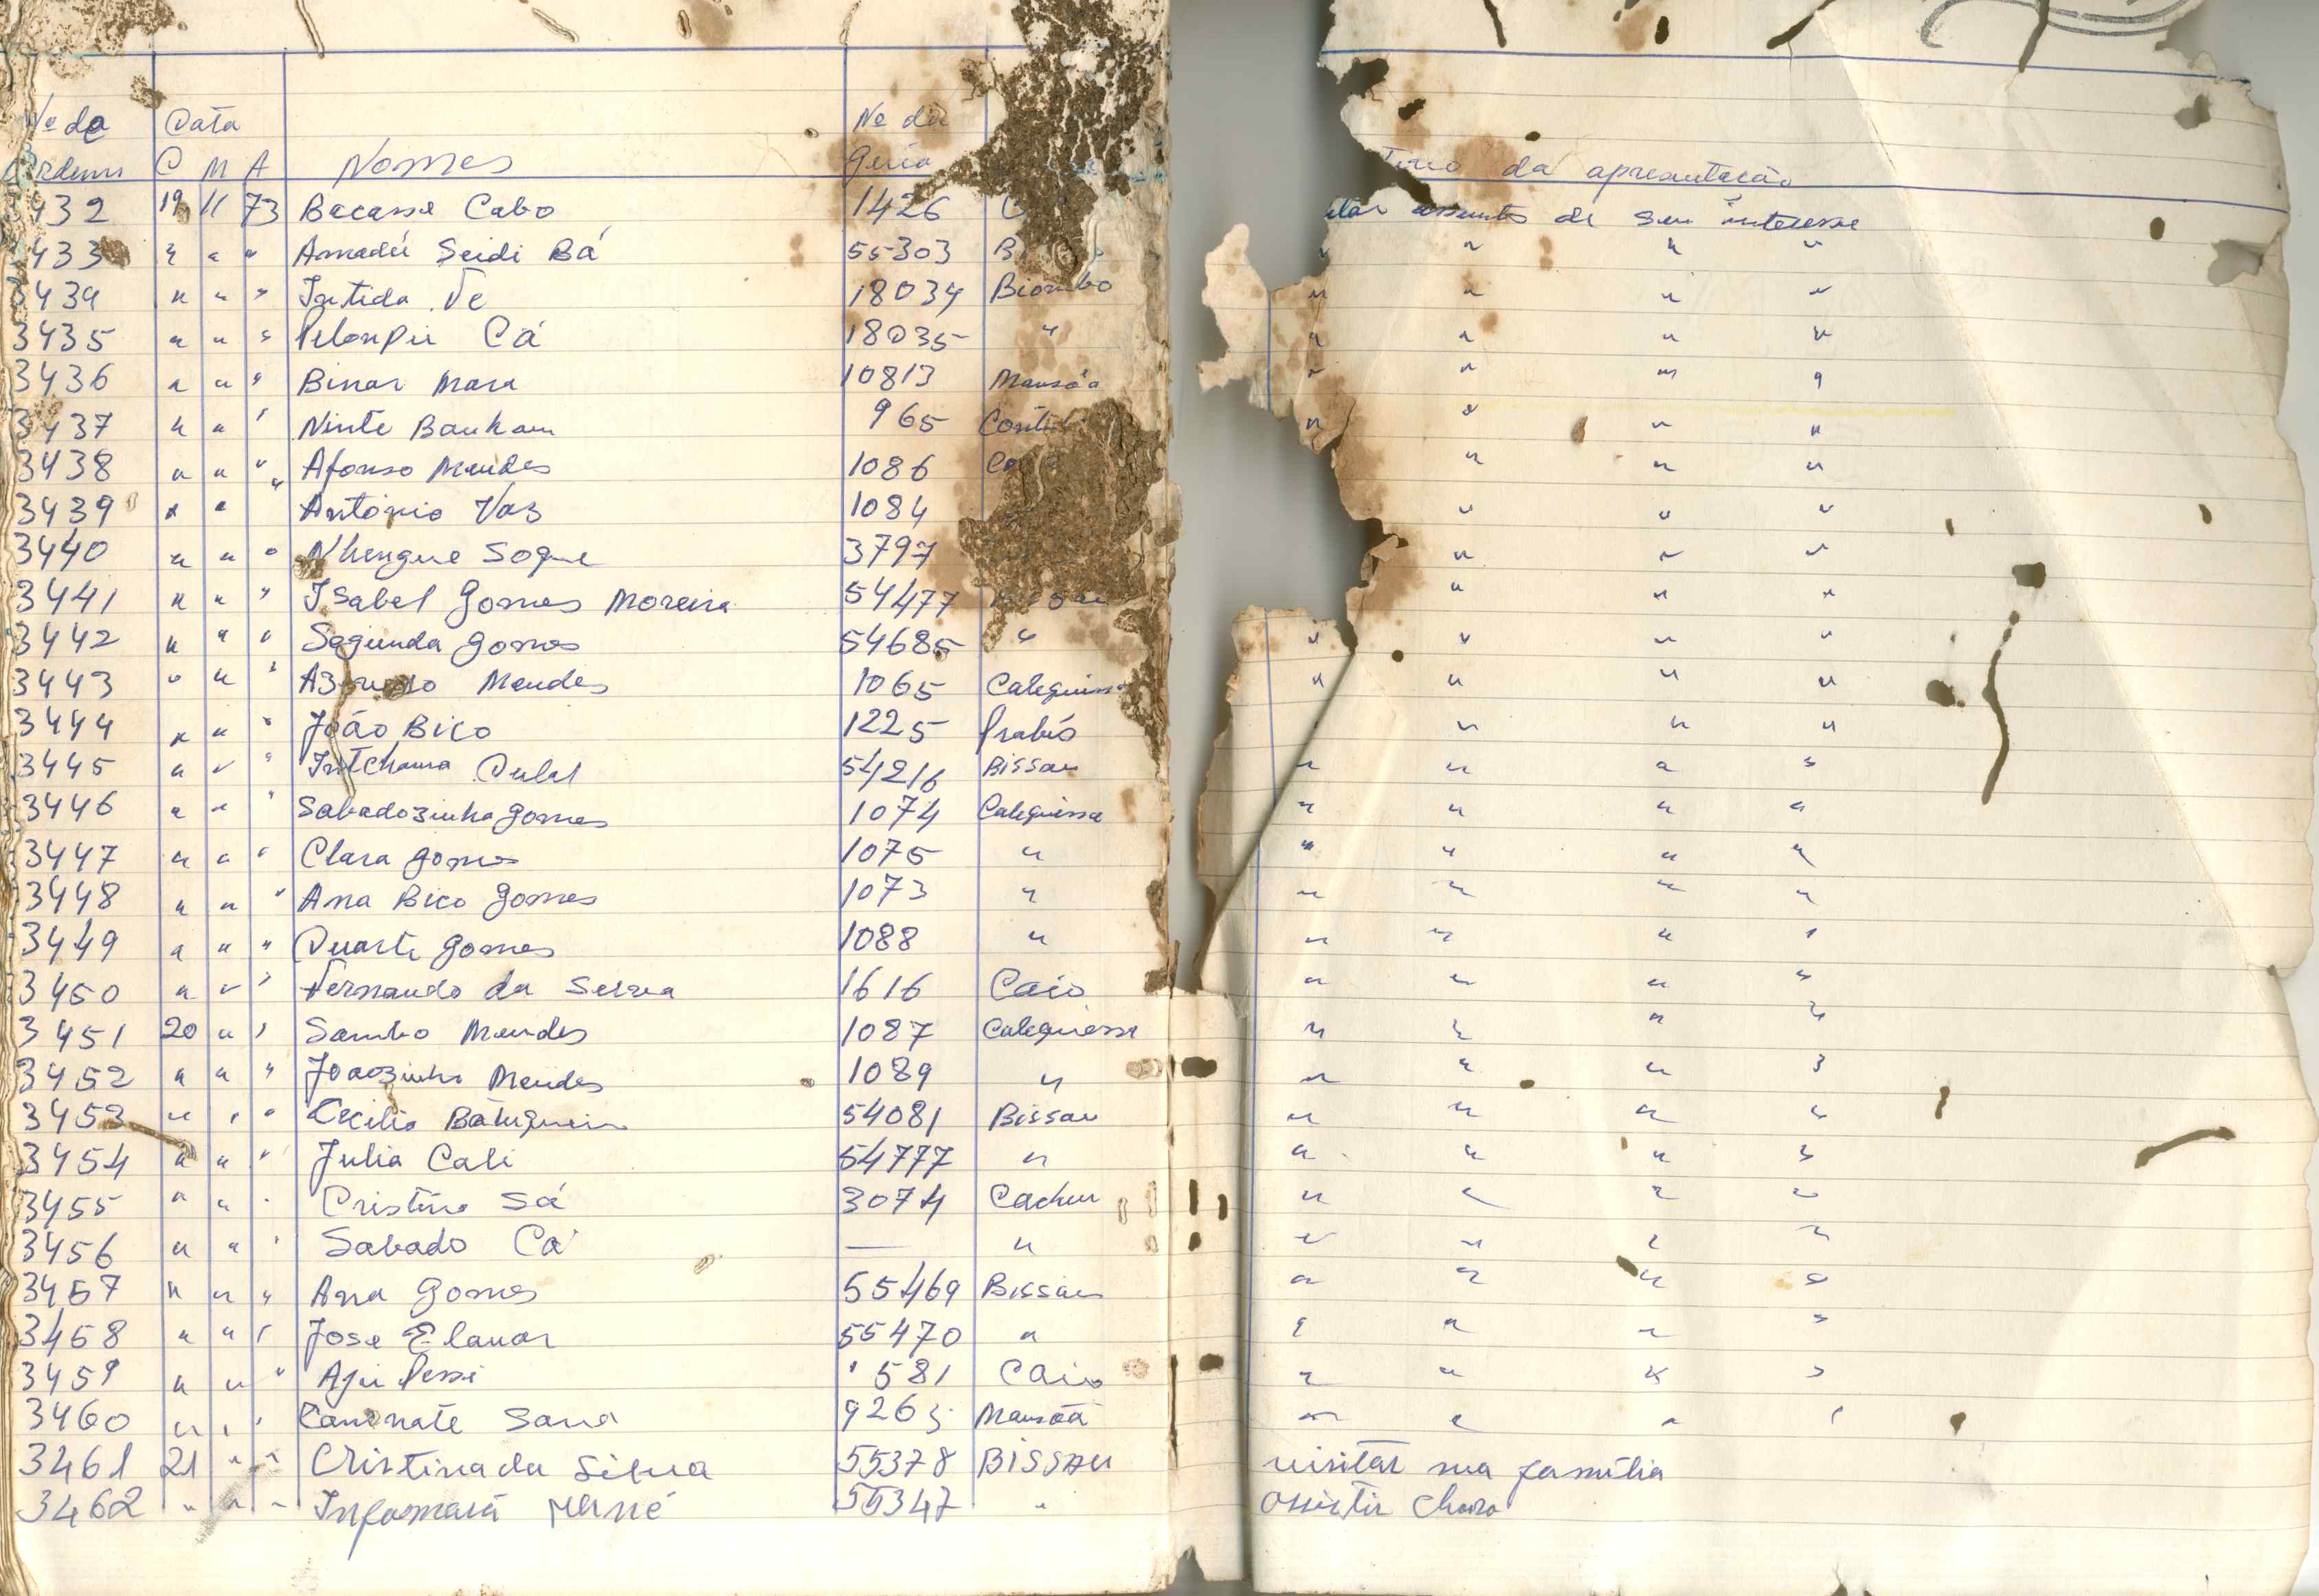 Nº da Data Nº da
Ordem D M A Nomes guia da apresentação
3432 19 11 73 Bacasse Cabo 1426 assunto de seu interesse
3433 " " " Amadú Seidi Bá 55303 " " " "
3434 " " " Té 18034 Biombo " " " "
3435 " " " Cá 18035 " " " " "
3436 " " " Binar Mara 10813 Mansôa " " " "
3437 " " " Ninte 965 " " " "
3438 " " " Afonso Mendes 1086 " " "
3439 " " " António Vaz 1084 " " "
3440 " " " Nhengue Soque 3797 " " "
3441 " " " Isabel Gomes Moreira 54477 " " "
3442 " " " Segunda Gomes 54685 " " " " "
3443 " " " Mendes 1065 Calequisse " " " "
3444 " " " João Bico 1225 Prabis " " " "
3445 " " " Intchama 54216 Bissau " " " "
3446 " " " Sabadozinha Gomes 1074 Calequisse " " " "
3447 " " " Clara Gomes 1075 " " " " "
3448 " " " Ana Bico Gomes 1073 " " " " "
3449 " " " Duarte Gomes 1088 " " " " "
3450 " " " Fernando da 1616 Caio " " " "
3451 20 " " Sambo Mendes 1087 Calequisse " " " "
3452 " " " Joaozinho Mendes 1089 " " " " "
3453 " " " 54081 Bissau " " " "
3454 " " " Julia Cali 54777 " " " " "
3455 " " " Sá 3074 Cacheu " " " "
3456 " " " Sabado Cá — " " " " "
3457 " " " Ana Gomes 55469 Bissau " " " "
3458 " " " Jose Elanar 55470 " " " " "
3459 " " " 581 Caio " " " "
3460 " " " Sana Mansôa " " " "
3461 21 " " Cristina da Silva 55378 BISSAU visitar sua familia
3462 " " " 55347 " Assistir Choro